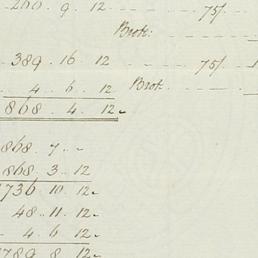 260 . 9 . 12 75/
Brot:
389 . 16 . 12 75/
4 . 6 . 12 Brot.
868 . 4 . 12
868 . 7 . -
868 . 3 . 12
1736 . 10 . 12
48 . 11 . 12
4 . 6 . 12
1789 . 8 . 12